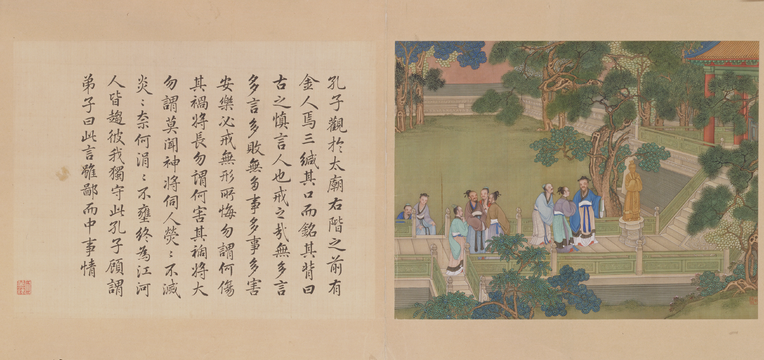 孔子觀於太廟右階之前有
金人焉三緘其口而銘其背曰
古之慎言人也戒之哉無多言
多言多敗無多事多事多害
安樂必戒無形所悔勿謂何傷
其禍將長勿謂何害其禍將大
勿謂莫聞神將伺人熒〻不滅
炎〻柰何涓〻不壅終為江河
人皆趨彼我獨守此孔子顧謂
弟子曰此言雖鄙而中事情